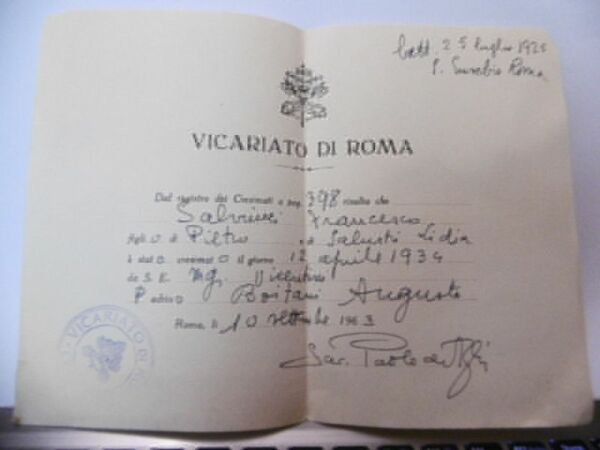 batt. 25 luglio 1925
S. Eusebio Roma
VICARIATO DI ROMA
Dal registro dei Cresimati a pag. 398 risulta che
Francesco
figlio di Pietro e di Salustri Lidia
è stato cresimato il giorno 12 aprile 1934
da S. E. Mg.
Padrino Boitani Augusto
Roma, li 10 settembre 1963
Sac. Paolo
VICARIATO DI